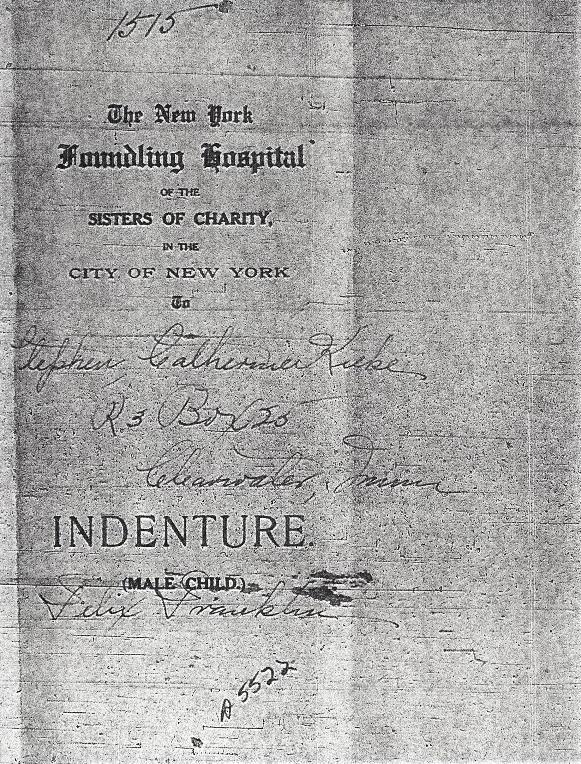 1515
The New York
Foundling Hospital
OF THE
SISTERS OF CHARITY,
IN THE
CITY OF NEW YORK
To
Stephen, Catherine
R 3 Box 25
Clearwater, Minn
INDENTURE.
(MALE CHILD.)
Felix Franklin
A 5522